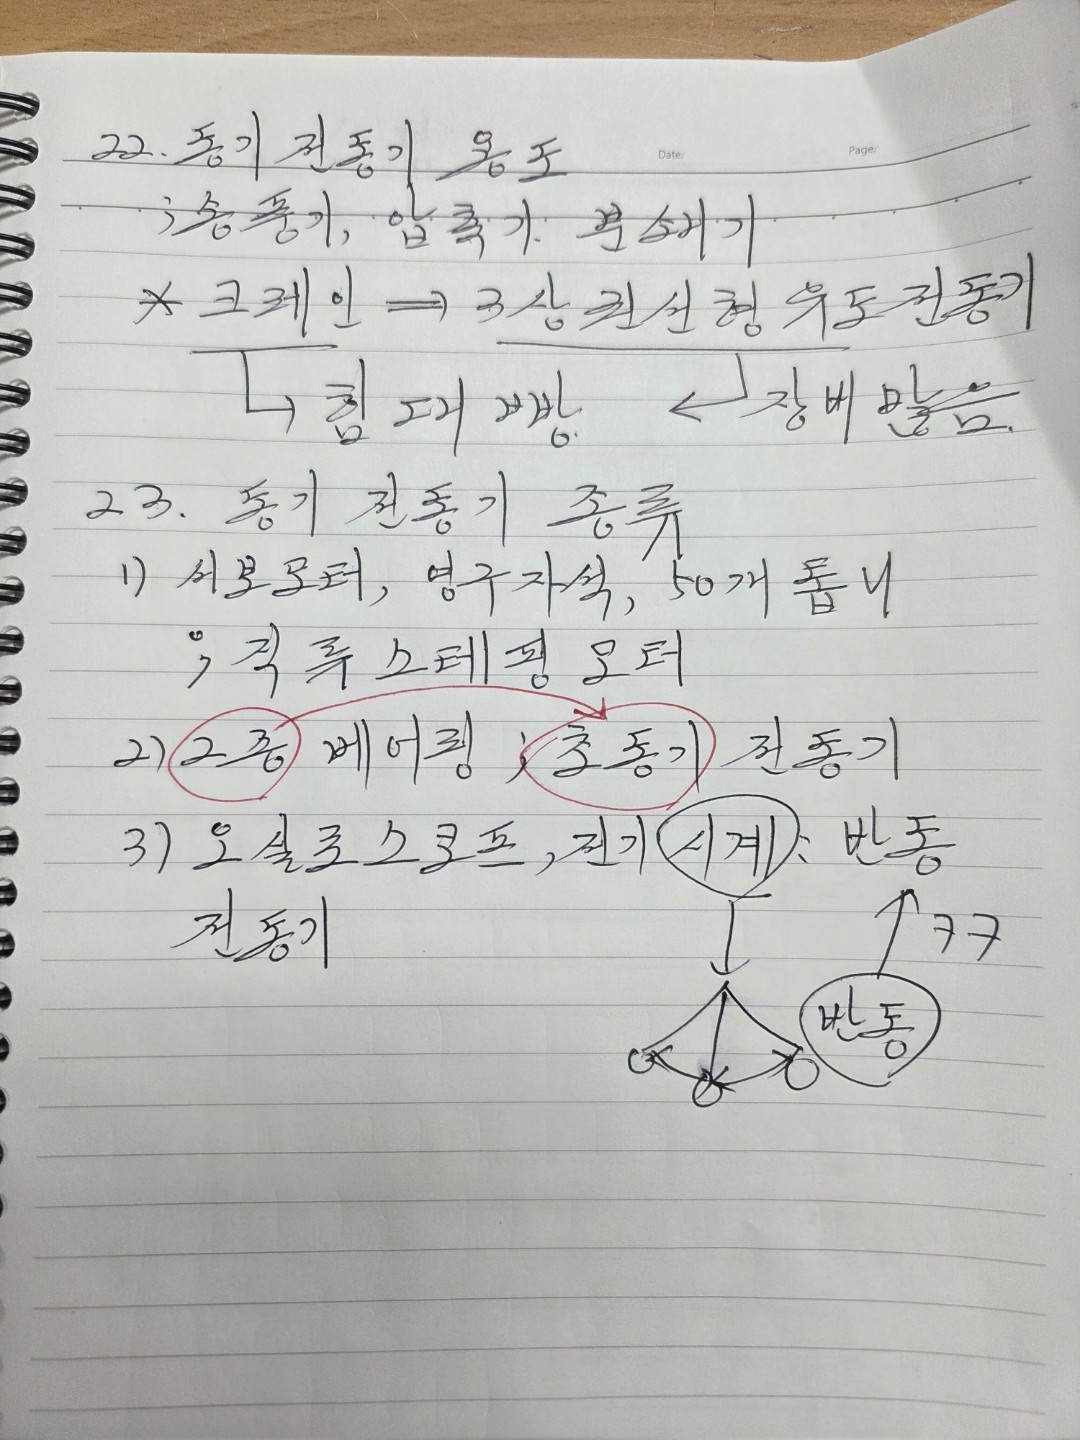 Date/ Page/
22. 동기 전동기 용도
; 송풍기, 압축기. 분쇄기
* 크레인 ⇒ 3상 권선형 유도전동기
↳ 힘 대빵. ← 장비 많음.
23. 동기 전동기 종류
1) 서보모터, 영구자석, 50개 톱니
; 직류 스테핑 모터
2) 2중 베어링 ; 초동기 전동기
3) 오실로스코프, 전기시계: 반동
전동기
ㅋㅋ
반동